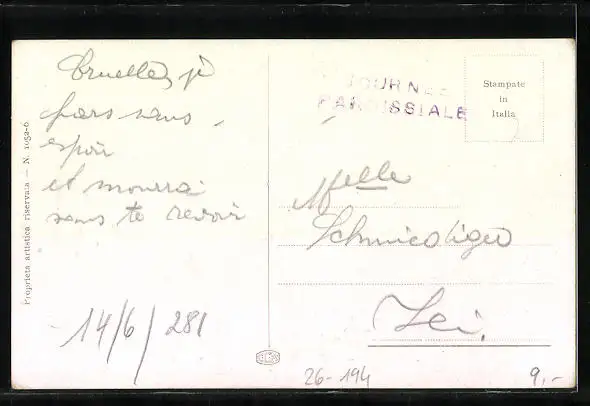 Cruelle, je
pars sans
espoir
et mourrai
sans te revoir
14/6/281
Proprieta artistica riservata — N. 1052-6
JOURNEE
PAROISSIALE
Stampate
in
Italia
Melle
26-194
9.-